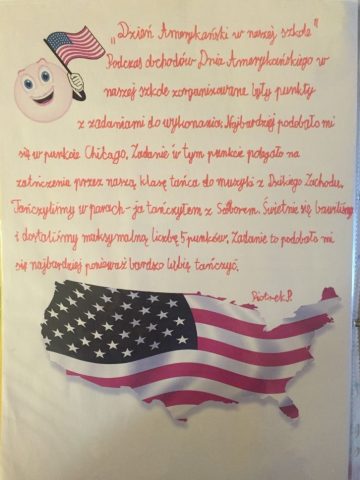 „Dzień Amerykański w naszej szkole"
Podczas obchodów Dnia Amerykańskiego w
naszej szkole zorganizowane były punkty
z zadaniami do wykonania. Najbardziej podobało mi
się w punkcie Chicago. Zadanie w tym punkcie polegało na
zatańczenie przez naszą klasę tańca do muzyki z Dzikiego Zachodu.
Tańczyliśmy w parach - ja tańczyłem z Świetnie się bawiliśmy
i dostaliśmy maksymalną liczbę 5 punków. Zadanie to podobało mi
się najbardziej ponieważ bardzo lubię tańczyć.
Piotrek P.